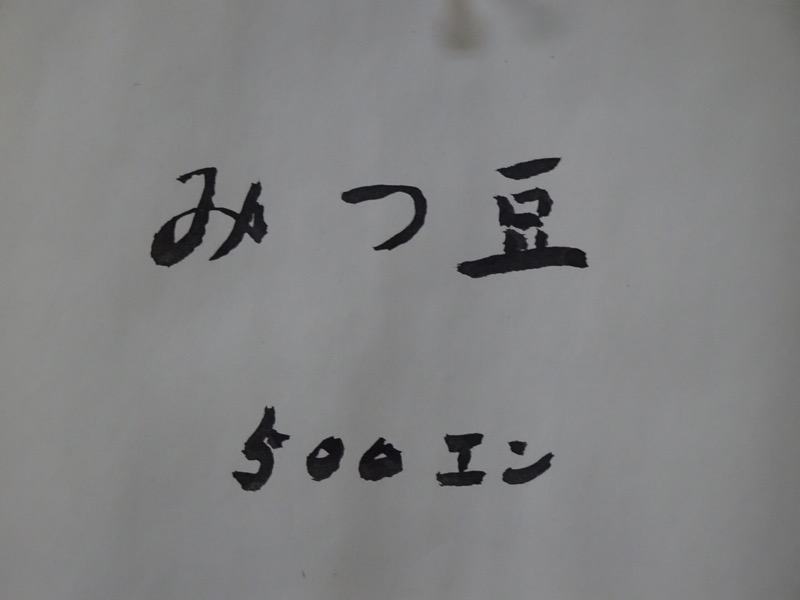 みつ豆
500エン